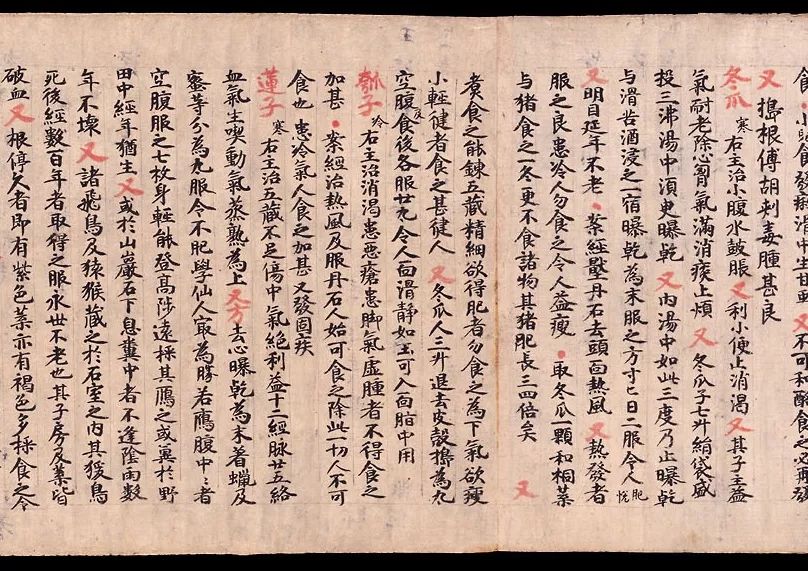 不可和酪食之必再發
又 擣根傅胡刾毒腫甚良
冬瓜 寒 右主治小腹水鼓脹 又 利小便止消渴 又 其子主益
氣耐老除心胷氣滿消痰止煩 又 冬瓜子七升絹袋盛
投三沸湯中須臾曝乾 又 内湯中如此三度乃止曝乾
与清苦酒浸之一宿曝乾為末服之方寸匕日二服令人肥悦
又 明目延年不老 • 案經壓丹石去頭面熱風 又 熱發者
服之良患冷人勿食之令人益瘦 • 取冬瓜一顆和桐葉
与猪食之一冬更不食諸物其猪肥長三四倍矣 又
煑食之能鍊五藏精細欲得肥者勿食之為下氣欲瘦
小輕健者食之甚健人 又 冬瓜人三升退去皮殼擣為丸
空腹及食後各服廿丸令人面滑静如玉可入面脂中用
瓠子 冷 右主治消渴患惡瘡患脚氣虛腫者不得食之
加甚 • 案經治熱風及服丹石人始可食之除此一切人不可
食也 患冷氣人食之加甚又發固疾
蓮子 寒 右主治五藏不足傷中氣絕利益十二經脉廿五絡
血氣生喫動氣蒸熟為上 又方 去心曝乾為末着蠟及
蜜等分為丸服令不肥學仙人㝡為勝若鴈腹中者
空腹服之七枚身輕能登高陟遠採其鴈之或糞於野
田中經年猶生 又 或於山巖石下息糞中者不逢陰雨數
年不壞 又 諸飛鳥及猿猴藏之於石室之内其猨鳥
死後經數百年者取得之服永世不老也其子房及葉皆
破血 又 根停久者即有紫色葉亦有褐色多採食之令